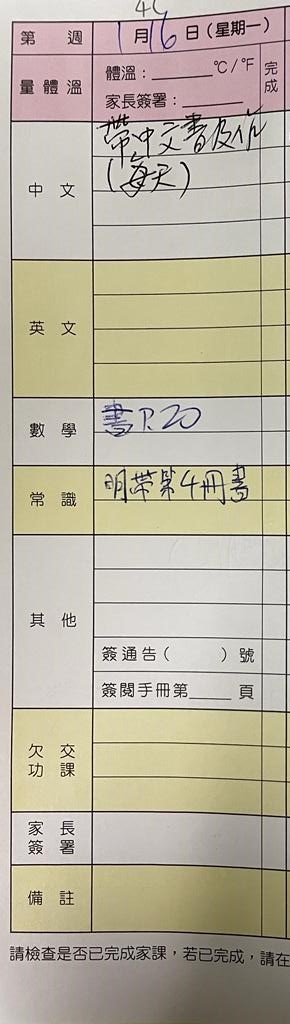 4C
第 週 1月16日(星期一)
量體溫 體溫:______ °C/°F 完成
家長簽署:______
中文 帶中文書及作
(每天)
英文
數學 書P.20
常識 明帶第4冊書
其他
簽通告( )號
簽閱手冊第____頁
欠交功課
家長簽署
備註
請檢查是否已完成家課,若已完成,請在